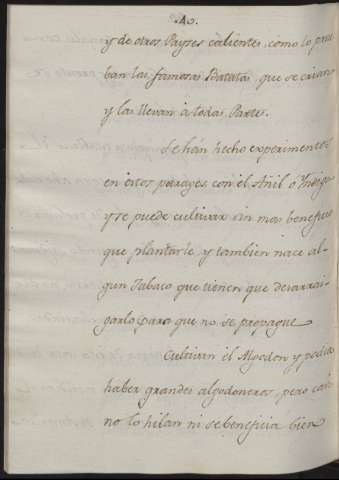 .40.
y de otros Payses calientes, como lo prue
ban las famosas Batatas, que se crian
y las llevan à todas Partes.
Se hán hecho experimentos
en estos parages con el Añil ò Yndigo
y se puede cultivar sin mas beneficio
que plantarle y tambien nace al-
gun Tabaco que tienen que desarrai-
garlo para que no se propague
Cultivan el Algodon y podia
haber grandes algodoneros, pero casi
no lo hilan ni se beneficia bien